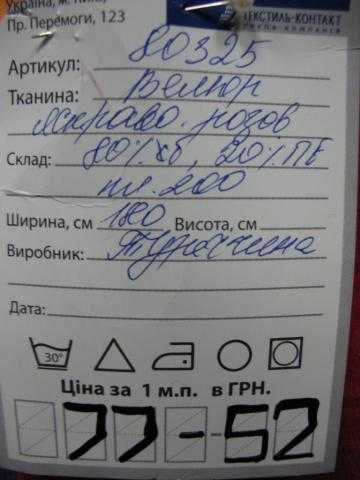 Україна, м. Київ,
Пр. Перемоги, 123
ТЕКСТИЛЬ-КОНТАКТ
ГРУПА КОМПАНІЙ
Артикул: 80325
Тканина: Велюр
яскраво-розов
Склад: 80% хб, 20% ПЕ
пл. 200
Ширина, см 180 Висота, см
Виробник: Туреччина
Дата:
30°
Ціна за 1 м.п. в ГРН.
77-52